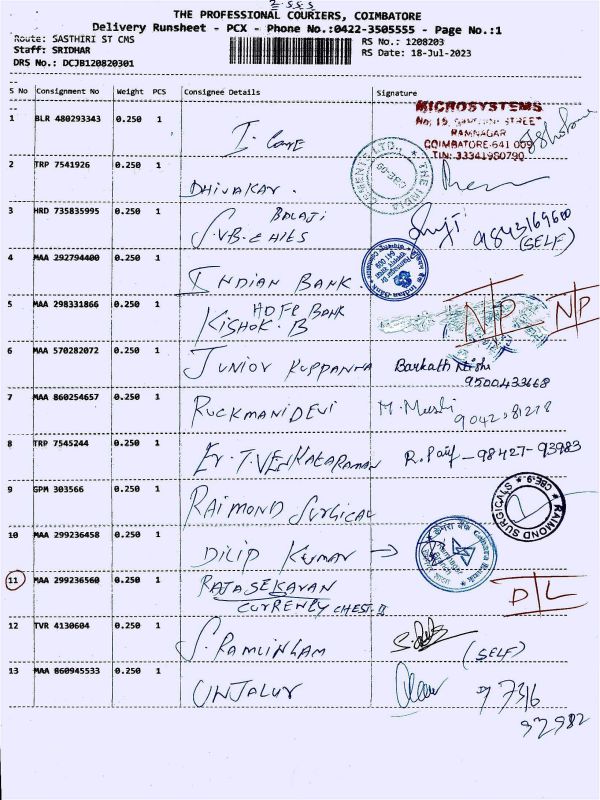 THE PROFESSIONAL COURIERS, COIMBATORE
Delivery Runsheet - PCX - Phone No.:0422-3505555 - Page No.:1
Route: SASTHIRI ST CMS
RS No.: 1208203
Staff: SRIDHAR
RS Date: 18-Jul-2023
DRS No.: DCJB120820301
S No Consignment No Weight PCS Consignee Details Signature
1 BLR 480293343 0.250 1 I. Care
MICROSYSTEMS
RAMNAGAR
COIMBATORE-641 009
TIN: 33341980790
2 TRP 7541926 0.250 1 DHIVAKAR.
3 HRD 735835995 0.250 1 BALAJI
S.VB. 9843169600
(SELF)
4 MAA 292794400 0.250 1 INDIAN BANK.
5 MAA 298331866 0.250 1 HDFC BANK
KISHOK. B
6 MAA 570282072 0.250 1 JUNIOR KUPPANNA Barkath Nisha
9500433668
7 MAA 860254657 0.250 1 RUCKMANIDEVI M.
8 TRP 7545244 0.250 1 Er. T. VENKATARAMAN 98427-93983
9 GPM 303566 0.250 1 RAIMOND SURGICAL
RAIMOND SURGICALS CBE-9
10 MAA 299236458 0.250 1 DILIP KUMAR
Canara Bank
11 MAA 299236560 0.250 1 RAJASEKARAN
CURRENCY CHEST. D/L
12 TVR 4130604 0.250 1 S. RAMLINHAM (SELF)
13 MAA 860945533 0.250 1 UNJALUR 7316
92982